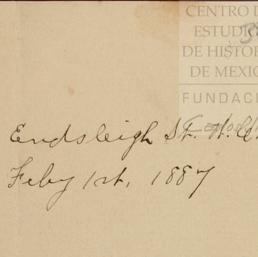 CENTRO D
ESTUDIO
DE HISTOR
DE MEXIC
FUNDACI
Endsleigh St. W.C.
Feby 1st, 1887